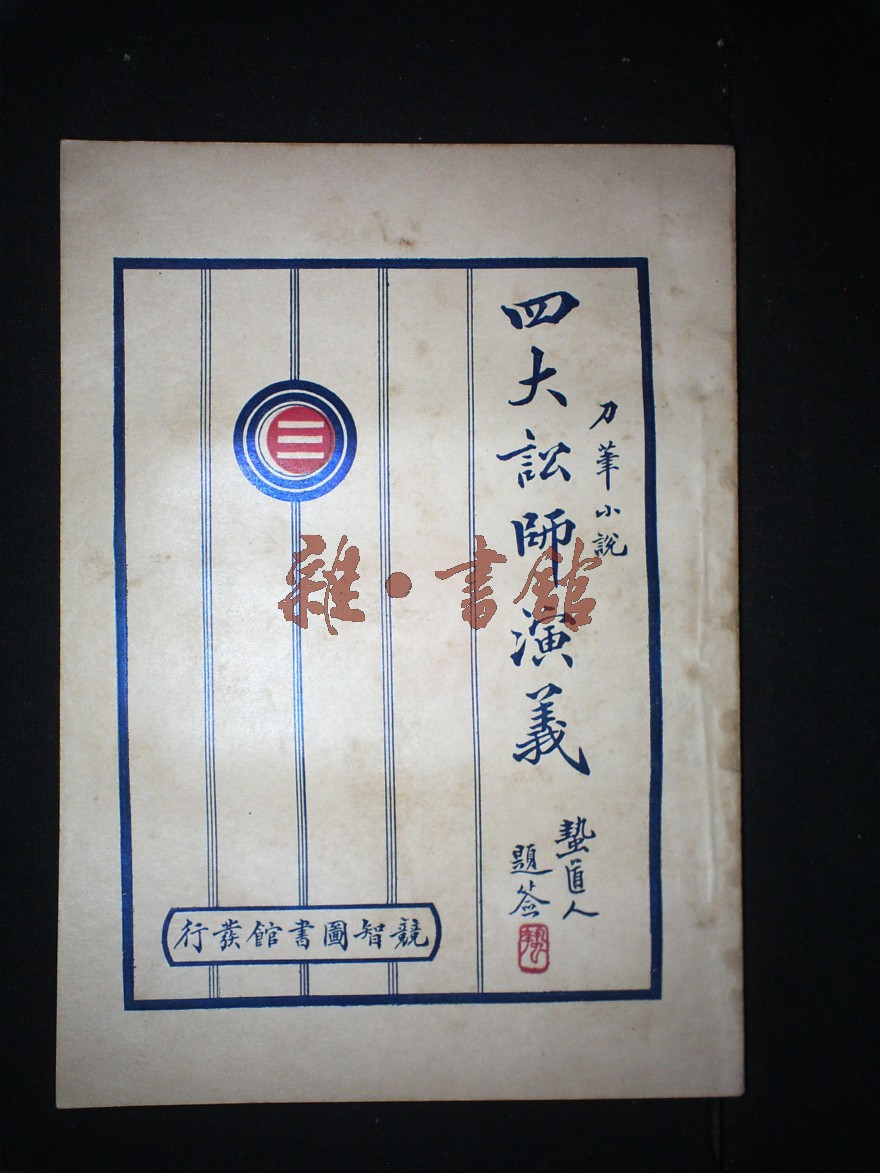 刀筆小說
四大訟師演義
蟄道人
題簽
競智圖書館發行
雜·書館